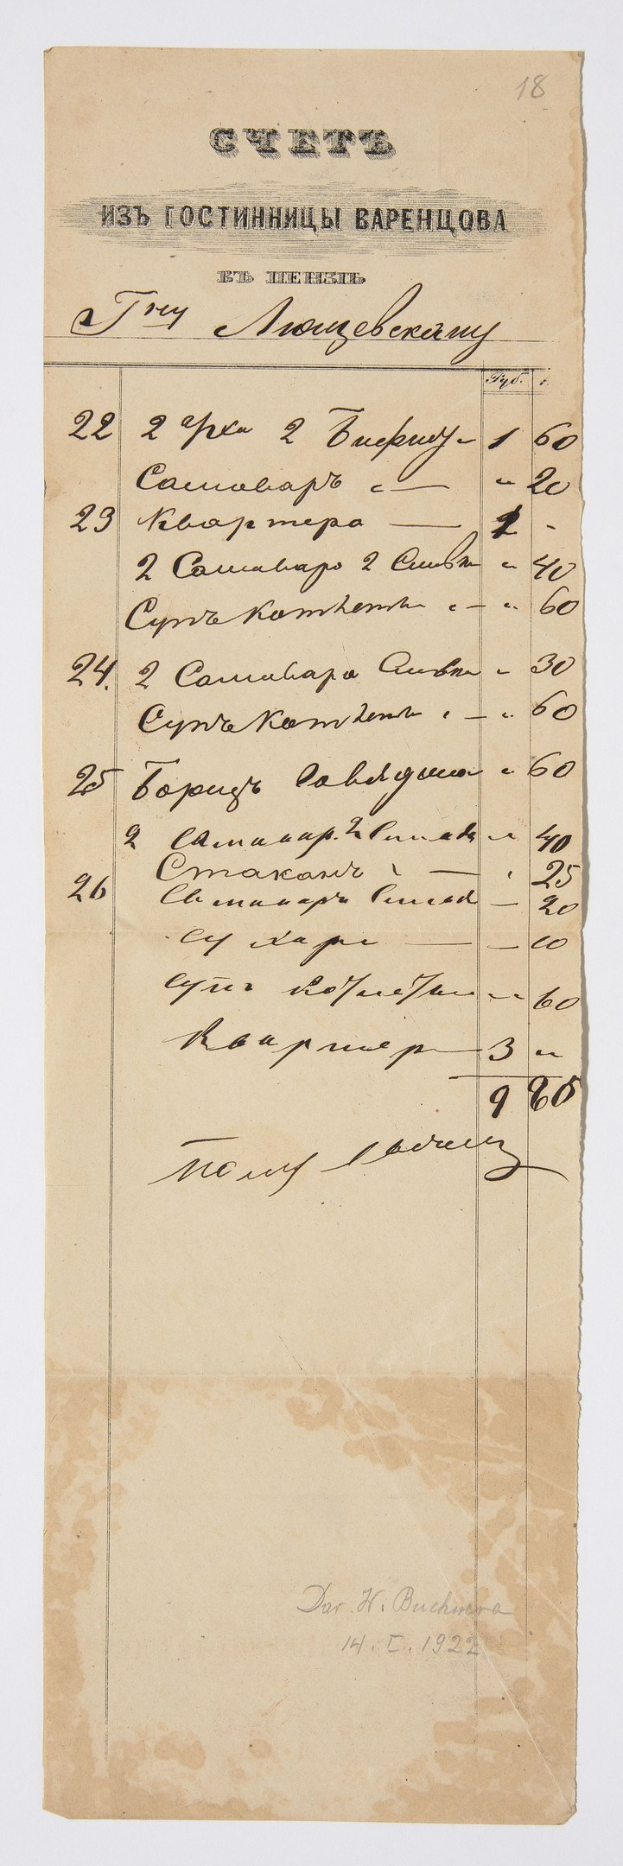 18
СЧЕТЪ
ИЗЪ ГОСТИННИЦЫ ВАРЕНЦОВА
ВЪ ПЕНЗѢ
Гну Лющевскому
Руб. к.
22 2 2 Бифш 1 60
Самоваръ " — " 20
23 Квартера — 1 -
2 Самовара 2 Сливк " 40
Супъ Котлеты " — " 60
24. 2 Самовара Сливк " 30
Супъ Котлеты " — " 60
25 Борщъ Говядина " 60
2 Самовар. 2 Сливк " 40
Стаканъ " — " 25
26 Самоваръ Сливк — 20
Сухари — — 10
Супъ Котлеты " 60
Квартер — 3 "
9 85
Dar W. Buchnera
14. I. 1922